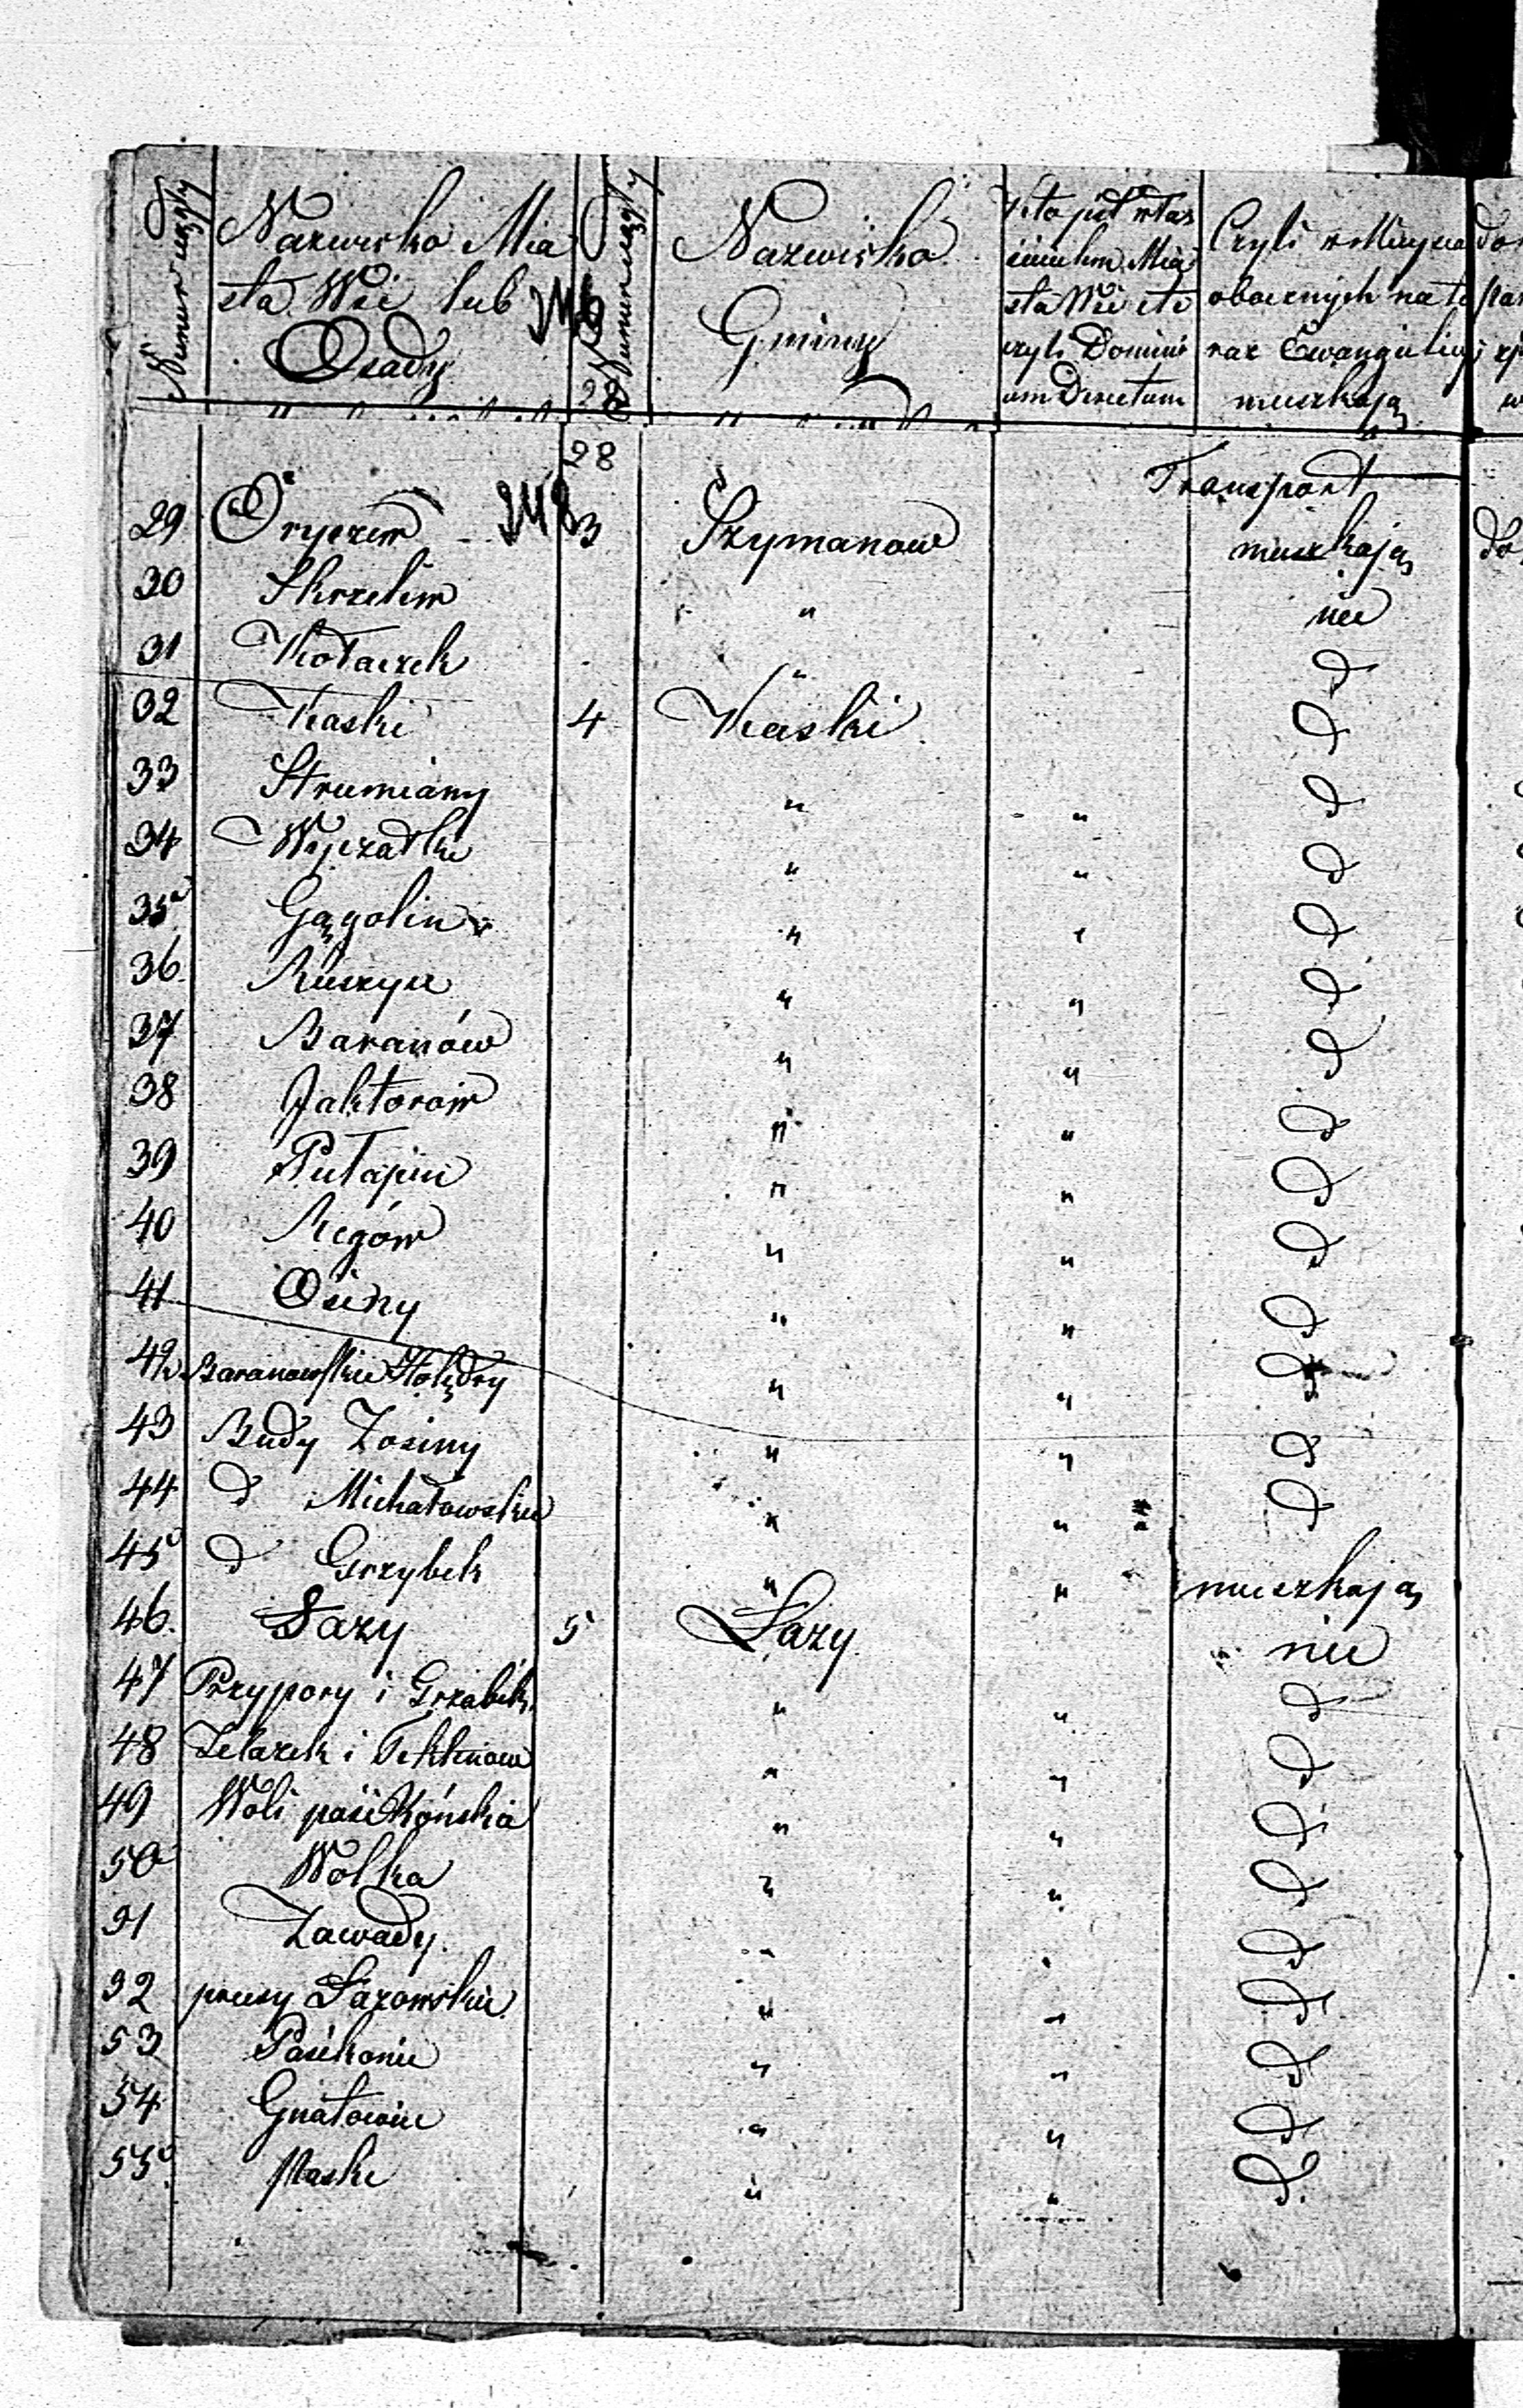 Numer ciągły
Nazwisko Mia
sta Wsi lub
Osady
Numer ciągły
Nazwisko
Gminy
Kto jest właś
cicielem Mia
sta Wsi etc
czyli Domini
um Directum
Czyli w Miejscach
obocznych na te
raz Ewangielicy
mieszkają
28
Transport
29 Oryszew 3 Szymanow mieszkają
30 Skrzelew " nie
31 Kołaczek " d
32 Kaski 4 Kaski d
33 Strumiany " " d
34 Wyczałki " " d
35 Gągolin " " d
36. " " d
37 Baranów " " d
38 Jaktorów " " d
39 " " d
40 Regów " " d
41 Osiny " " d
42 Baranowskie Holędry " " d
43 Budy Zosiny " " d
44 d Michałowskie " " d
45 d Grzybek " " mieszkają
46. Łazy 5 Łazy nie
47 Przypory i Grzabek. " " d
48 Żelazek i Teklinow " " d
49 Woli pasikońska " " d
50 Wolka " " d
51 Zawady. " " d
52 prusy Łazowskie. " " d
53 Pasikonie " " d
54 Gnatowice " " d
55. Piaski " " d.